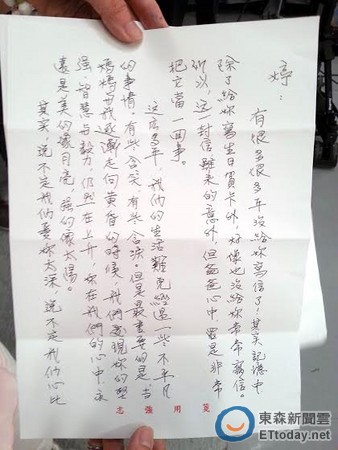 婷：
有很多很多年沒給妳寫信了！其實記憶中
除了給妳寫生日賀卡外，好像也沒給妳常常寫信。
所以，這一封信雖來的意外，但爸爸心中，還是非常
把它當一回事。
這么多年，我們的生活難免經過一些不平凡
的事情，有些含笑，有些含淚，但是最重要的是，當
媽媽與我逐漸走向黃昏的時候，我們發現妳的堅
強、智慧與毅力，仍然在上升，妳在我們的心中，永
遠是美的像月亮，強的像太陽。
其實，說不定我們愛妳太深，說不定我們心比
志強用箋
東森新聞雲
ETtoday.net